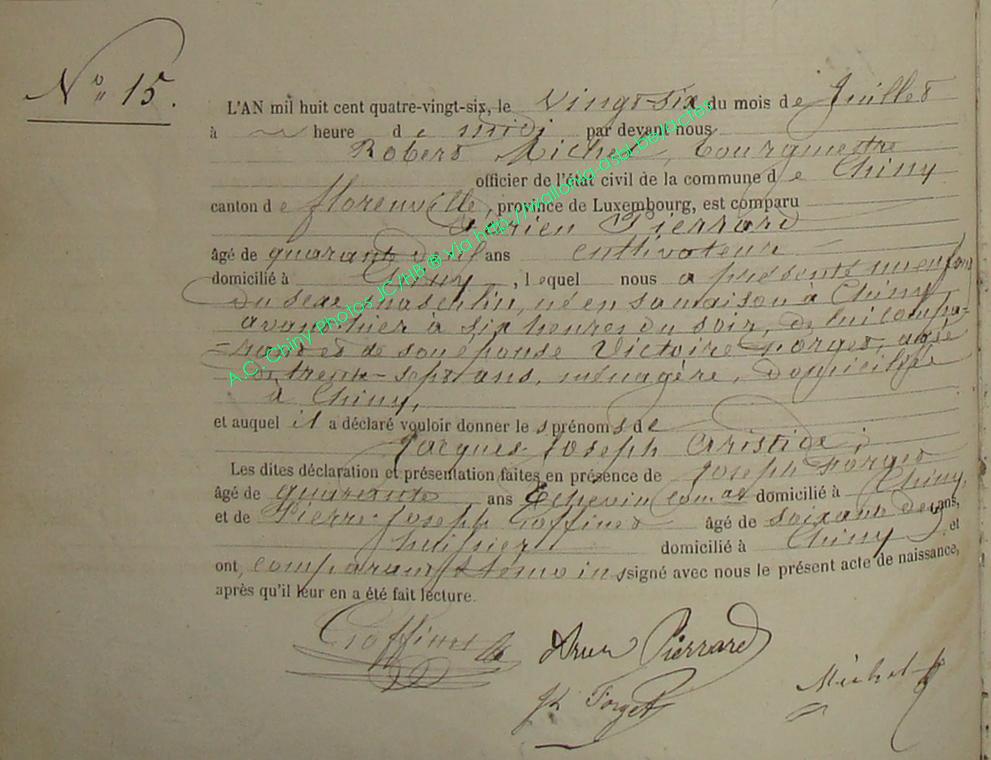 N° 15.
L'AN mil huit cent quatre-vingt-six, le vingt-six du mois de Juillet
à heure de midi par devant nous
Robert Michel, bourgmestre
officier de l'état civil de la commune de Chiny
canton de florenville, province de Luxembourg, est comparu
Adrien Pierrard
âgé de quarante ans cultivateur
domicilié à Chiny, lequel nous a présenté un enfant
du sexe masculin, né en sa maison à Chiny
avant hier à six heures du soir, de lui compa-
-rant et de son épouse Victoire Forget, âgée
de trente-sept ans, ménagère, domiciliée
à Chiny,
et auquel il a déclaré vouloir donner les prénoms de
Jacques Joseph Aristide;
Les dites déclaration et présentation faites en présence de Joseph Forget
âgé de quarante ans Echevin com.al domicilié à Chiny,
et de Pierre-Joseph Goffinet âgé de soixante deux ans,
huissier domicilié à Chiny, et
ont, comparant & témoins signé avec nous le présent acte de naissance,
après qu'il leur en a été fait lecture.
Goffinet Adrien Pierrard
Jh Forget Michel R
A.C. Chiny Photos JC/HB ® via http://wallonia-asbl.be/o/actes